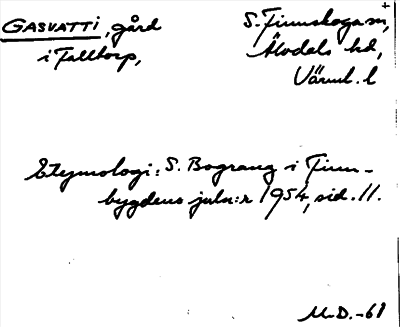 GASVATTI, gård
i Falltorp,
S. Finnskoga sn,
Älvdals hd,
Värml. l
Etymologi: S. Bograng i Finn-
bygdens juln:r 1954, sid. 11.
M.D.-61